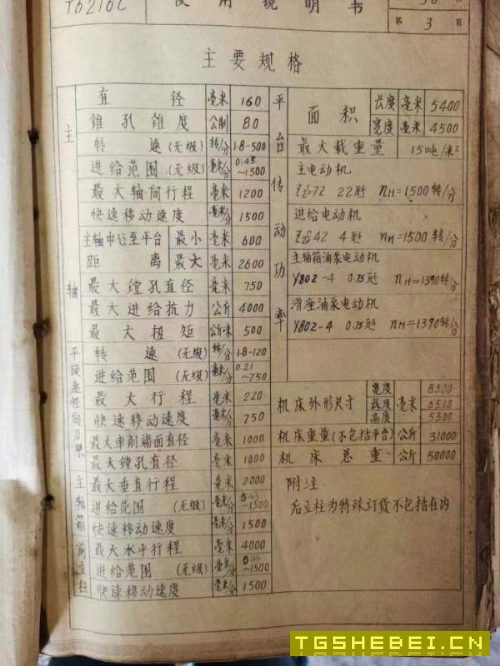 T6216C
使用说明书
第 3 页
主要规格
主轴
直径 毫米 160
锥孔锥度 公制 80
转速 (无级) 转/分 1.8-500
进给范围 (无级) 毫米/分 ~1500
最大轴向行程 毫米 1200
快速移动速度 毫米/分 1500
主轴中心至平台 最小 毫米 600
距离 最大 毫米 2600
最大镗孔直径 毫米 750
最大进给抗力 公斤 4000
最大扭矩 公斤·米 500
转速 (无级) 转/分 1.8-120
进给范围 (无级) 毫米/分 0.21~750
最大行程 毫米 220
快速移动速度 毫米/分 750
最大车削端面直径 毫米 1000
最大镗孔直径 毫米 1000
主轴箱 前立柱
最大垂直行程 毫米 2000
进给范围 (无级) 毫米/分 ~1500
快速移动速度 毫米/分 1500
最大水平行程 毫米 4000
进给范围 (无级) 毫米/分 ~1500
快速移动速度 毫米/分 1500
平台
面积 长度 毫米 5400
宽度 毫米 4500
最大载重量 15吨/米²
传动功率
主电动机
Z2-72 22 nH=1500转/分
进给电动机
Z2-42 4 nH=1500转/分
主轴箱油泵电动机
YB02-4 0.75 nH=1390转/分
滑座油泵电动机
YB02-4 0.75 nH=1390转/分
机床外形尺寸 毫米
宽度 8300
长度 6510
高度 5300
机床重量(不包括平台) 公斤 31000
机床总重 公斤 50000
附注:
后立柱为特殊订货不包括在内
TGSHEBEI.CN